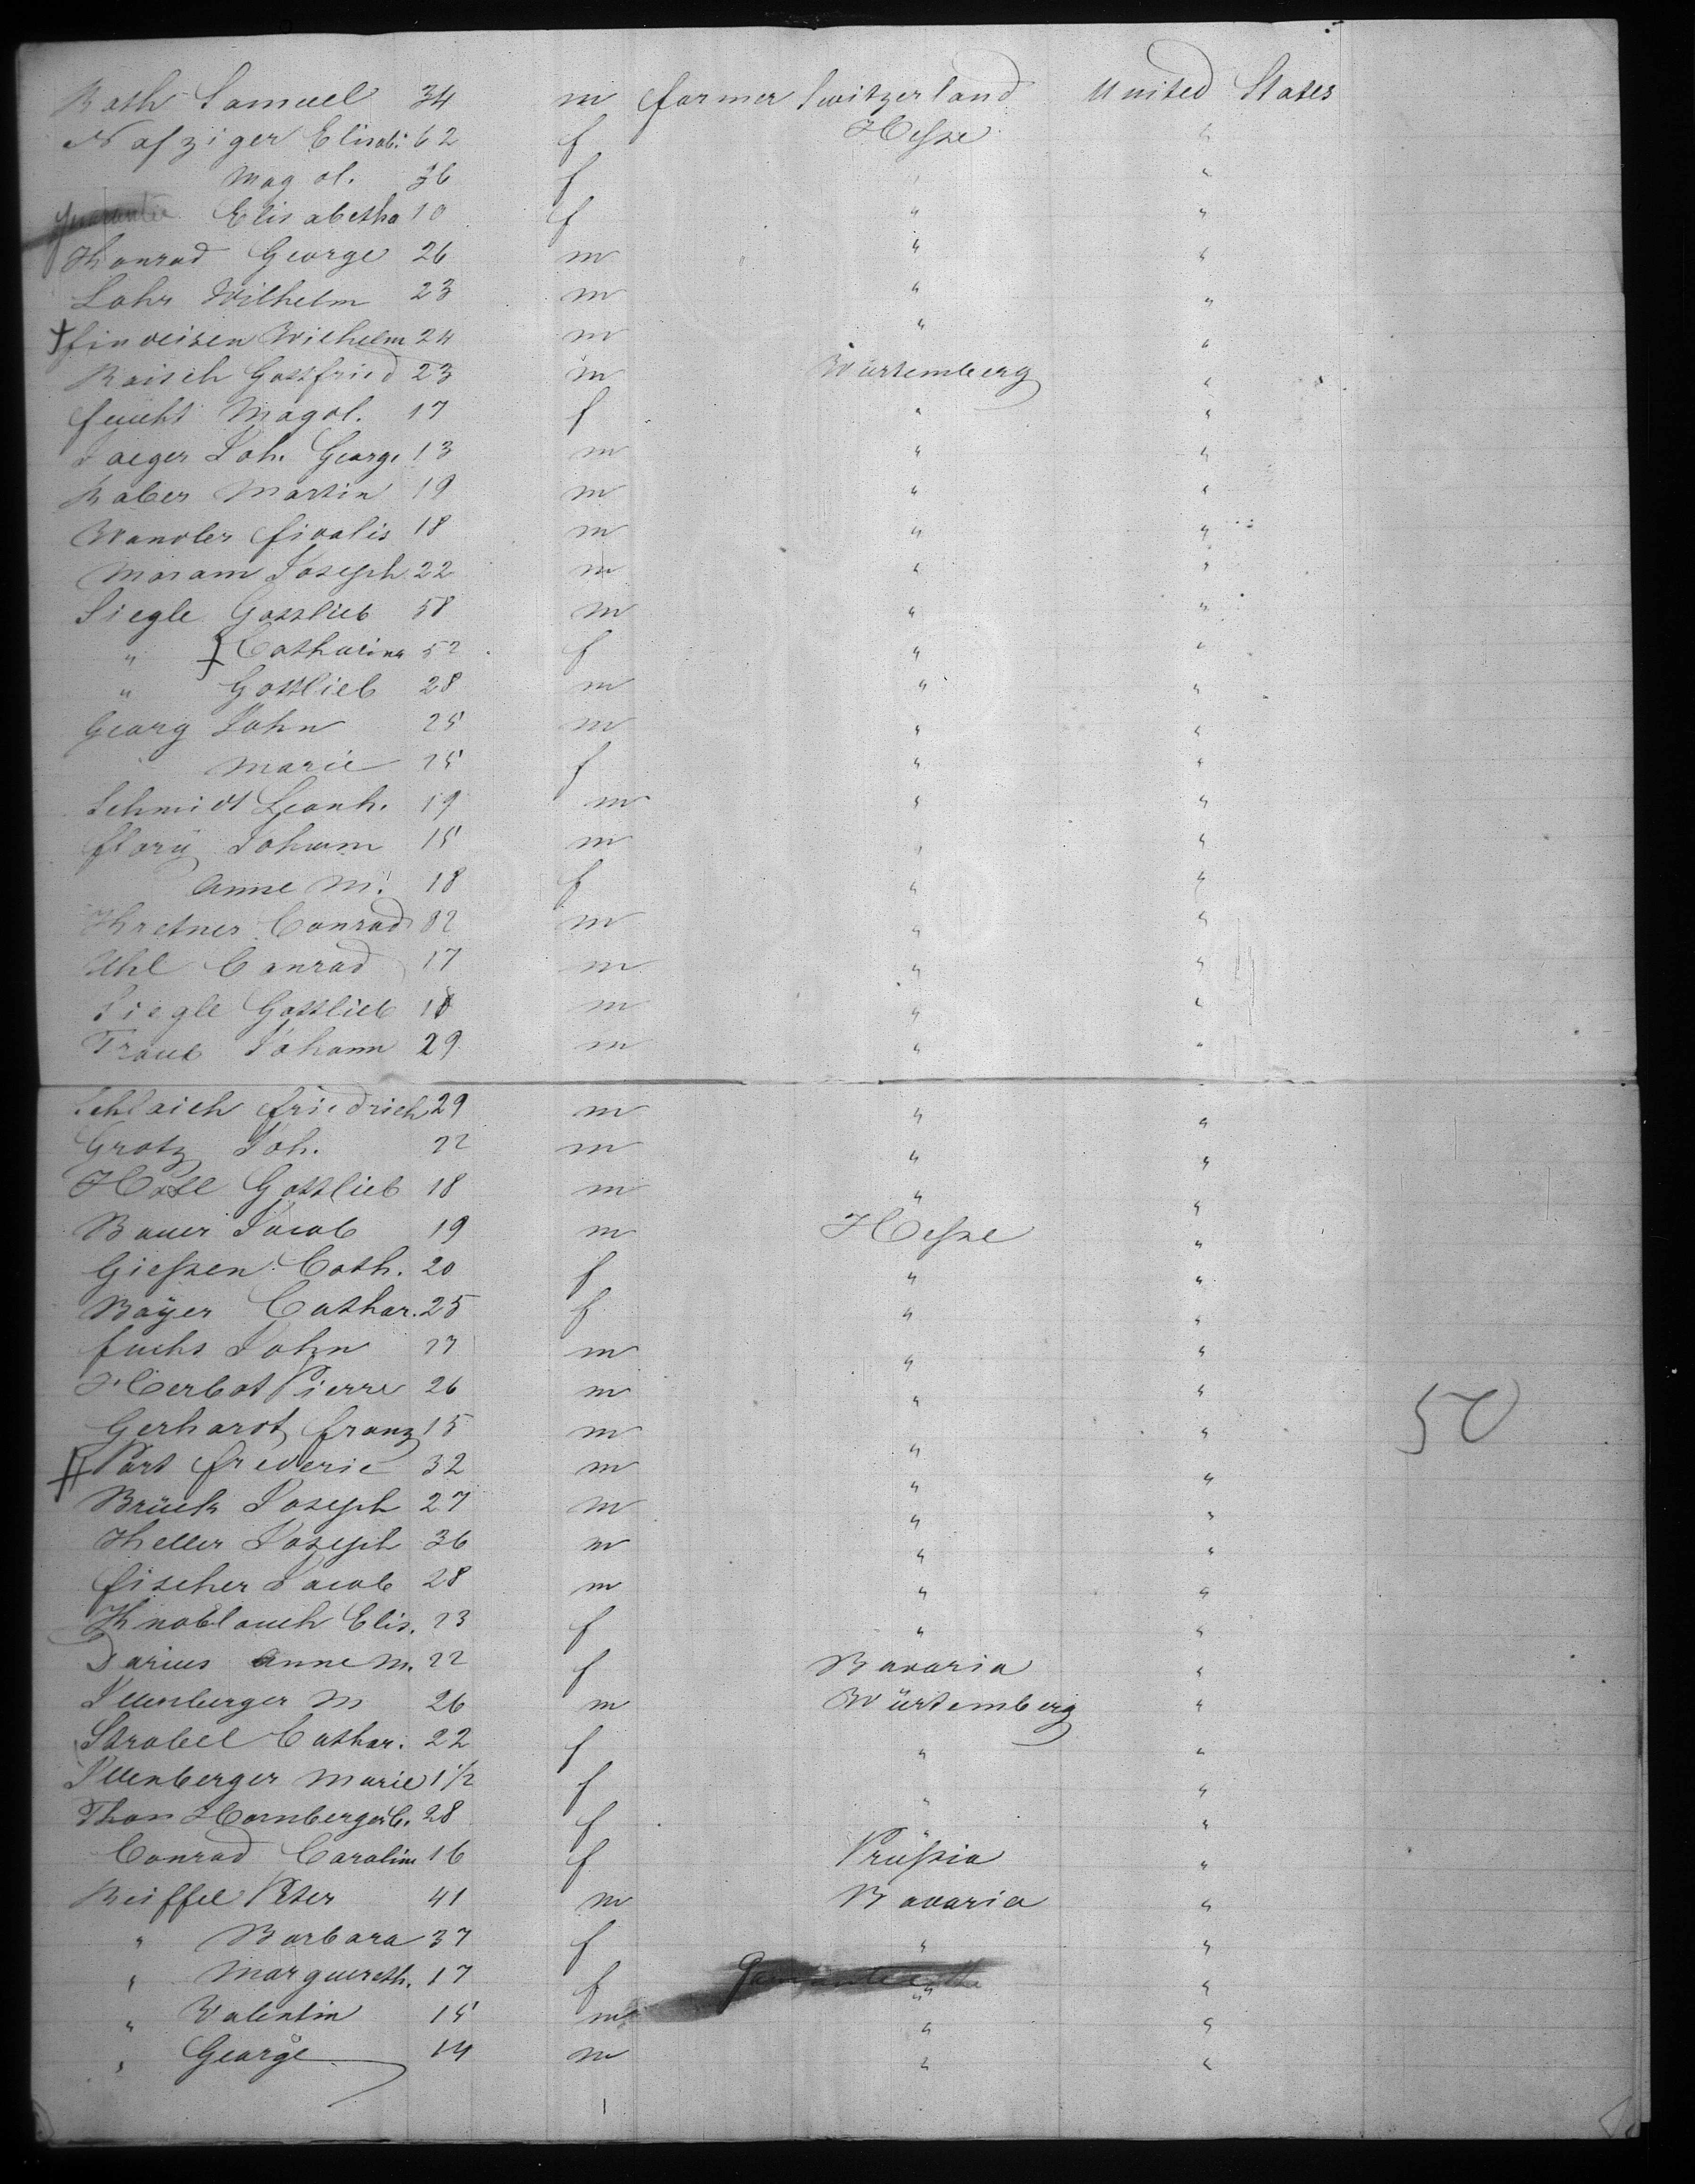 Roth Samuel 34 m farmer Switzerland United States
Nafziger Elisab. 62 f Heſse "
Magd. 36 f " "
Elisabetha 10 f " "
Konrad George 26 m " "
Lohr Wilhelm 23 m " "
Findeisen Wilhelm 24 m " "
Raisch Gottfried 23 m Würtemberg "
feucht Magd. 17 f " "
Jaeger Joh. George 13 m " "
Raber Martin 19 m " "
Wandler fidalis 18 m " "
Maram Joseph 22 m " "
Siegle Gottlieb 58 m " "
" Catharina 52 f " "
" Gottlieb 28 m " "
Georg John 25 m " "
" Marie 25 f " "
Schmidt Leonh. 19 m " "
flory Johann 15 m " "
Anne M. 18 f " "
Conrad m " "
Uhl Conrad 17 m " "
Siegle Gottlieb 18 m " "
Traub Johann 29 m " "
Schlaich friedrich 29 m " "
Grotz Joh. 22 m " "
Gottlieb 18 m " "
Bauer Jacob 19 m Heſse "
Gieſsen Cath. 20 f " "
Bayer Cathar. 25 f " "
fuchs John 27 m " "
Herbot Pierre 26 m " "
Gerhardt franz 15 m " "
Port frederic 32 m " "
Brück Joseph 27 m " "
Keller Joseph 36 m " "
fischer Jacob 28 m " "
Knoblauch Elis. 23 f " "
Darius Anne M. 22 f Bavaria "
Illenberger M 26 m Würtemberg "
Strobel Cathar. 22 f " "
Illenberger Marie 1 1/2 f " "
Thon Hornberger C. 28 f " "
Conrad Carolin 16 f Prüſsia "
Reiffel Peter 41 m Bavaria "
" Barbara 37 f " "
" Marguereth. 17 f " "
" Valentin 15 m " "
" George 14 m " "
50